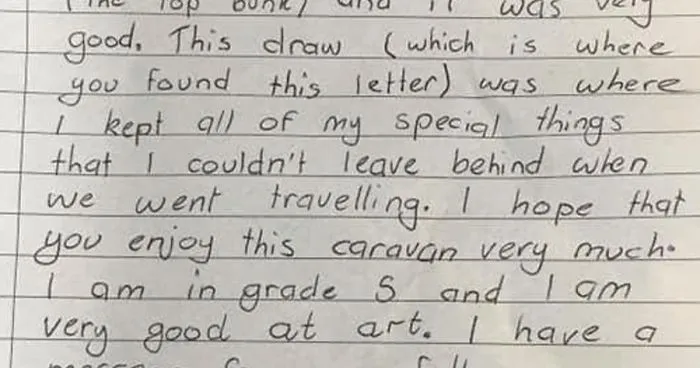 (the top bunk) and it was very
good. This draw (which is where
you found this letter) was where
I kept all of my special things
that I couldn't leave behind when
we went travelling. I hope that
you enjoy this caravan very much.
I am in grade 5 and I am
very good at art. I have a